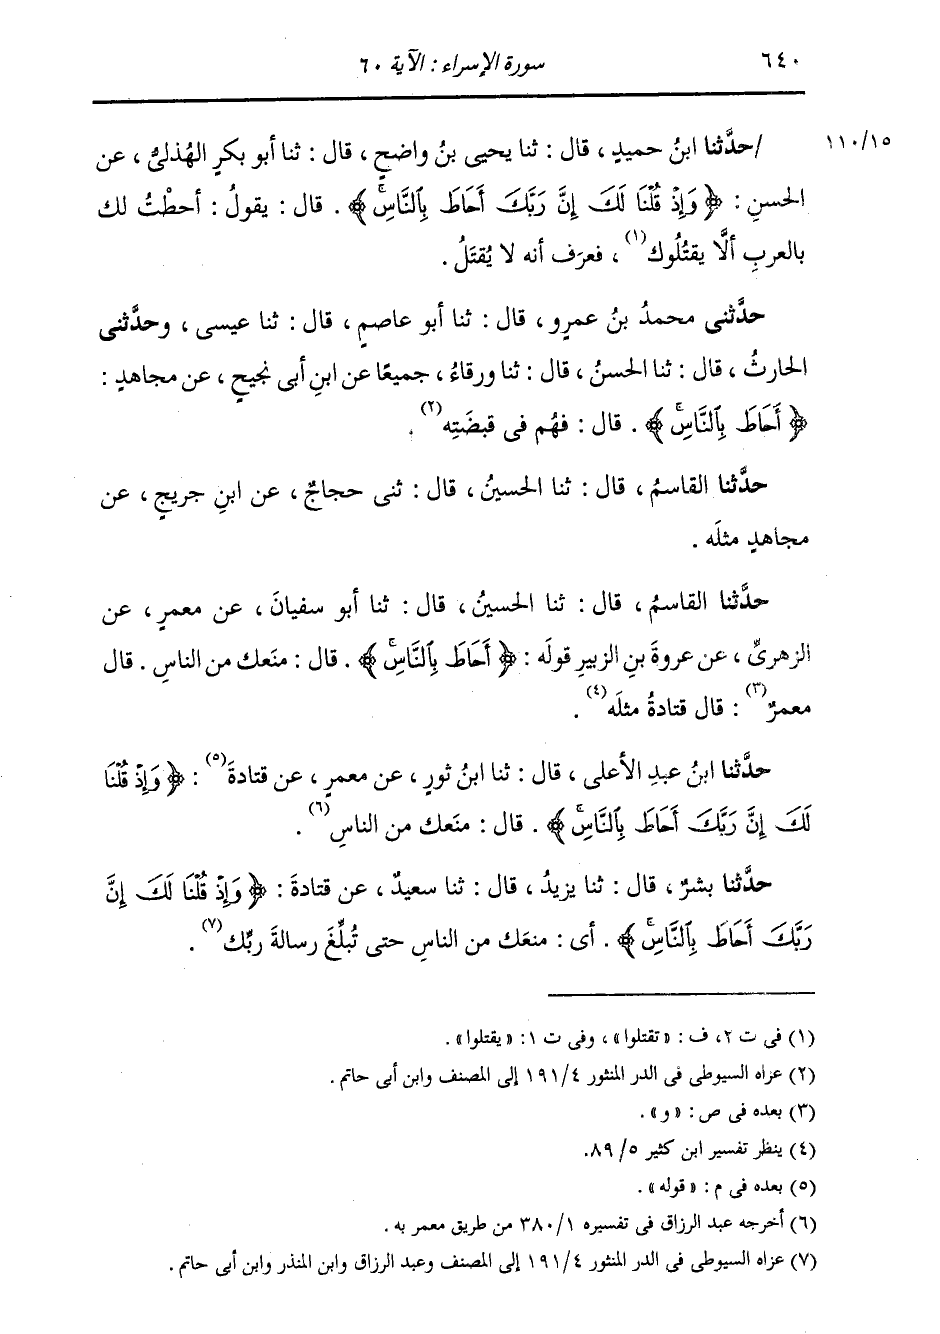 ٦٤٠ سورة الإسراء : الآية ٦٠
١١٠/١٥ /حدَّثنا ابنُ حميدٍ ، قال : ثنا يحيى بنُ واضحٍ ، قال : ثنا أبو بكرٍ الهُذلىُّ ، عن
الحسنِ : ﴿ وَإِذْ قُلْنَا لَكَ إِنَّ رَبَّكَ أَحَاطَ بِٱلنَّاسِۚ ﴾ . قال : يقولُ : أحطْتُ لك
بالعربِ ألَّا يقتُلُوك(١) ، فعرَف أنه لا يُقتَلُ .
حدَّثنى محمدُ بنُ عمرٍو ، قال : ثنا أبو عاصمٍ ، قال : ثنا عيسى ، وحدَّثنى
الحارثُ ، قال : ثنا الحسنُ ، قال : ثنا ورقاءُ ، جميعًا عن ابنِ أبى نجيحٍ ، عن مجاهدٍ :
﴿ أَحَاطَ بِٱلنَّاسِۚ ﴾ . قال : فهُم فى قبضَتِه(٢) .
حدَّثنا القاسمُ ، قال : ثنا الحسينُ ، قال : ثنى حجاجٌ ، عن ابنِ جريجٍ ، عن
مجاهدٍ مثلَه .
حدَّثنا القاسمُ ، قال : ثنا الحسينُ ، قال : ثنا أبو سفيانَ ، عن معمرٍ ، عن
الزهرىِّ ، عن عروةَ بنِ الزبيرِ قولَه : ﴿ أَحَاطَ بِٱلنَّاسِۚ ﴾ . قال : منَعك من الناسِ . قال
معمرٌ(٣) : قال قتادةُ مثلَه(٤) .
حدَّثنا ابنُ عبدِ الأعلى ، قال : ثنا ابنُ ثورٍ ، عن معمرٍ ، عن قتادةَ(٥) : ﴿ وَإِذْ قُلْنَا
لَكَ إِنَّ رَبَّكَ أَحَاطَ بِٱلنَّاسِۚ ﴾ . قال : منَعك من الناسِ(٦) .
حدَّثنا بشرٌ ، قال : ثنا يزيدُ ، قال : ثنا سعيدٌ ، عن قتادةَ : ﴿ وَإِذْ قُلْنَا لَكَ إِنَّ
رَبَّكَ أَحَاطَ بِٱلنَّاسِۚ ﴾ . أى : منعَك من الناسِ حتى تُبلِّغَ رسالةَ ربِّك(٧) .
(١) فى ت ٢، ف : «تقتلوا» ، وفى ت ١: «يقتلوا» .
(٢) عزاه السيوطى فى الدر المنثور ١٩١/٤ إلى المصنف وابن أبى حاتم .
(٣) بعده فى ص : «و» .
(٤) ينظر تفسير ابن كثير ٥/ ٨٩.
(٥) بعده فى م : «قوله» .
(٦) أخرجه عبد الرزاق فى تفسيره ٣٨٠/١ من طريق معمر به .
(٧) عزاه السيوطى فى الدر المنثور ١٩١/٤ إلى المصنف وعبد الرزاق وابن المنذر وابن أبى حاتم .